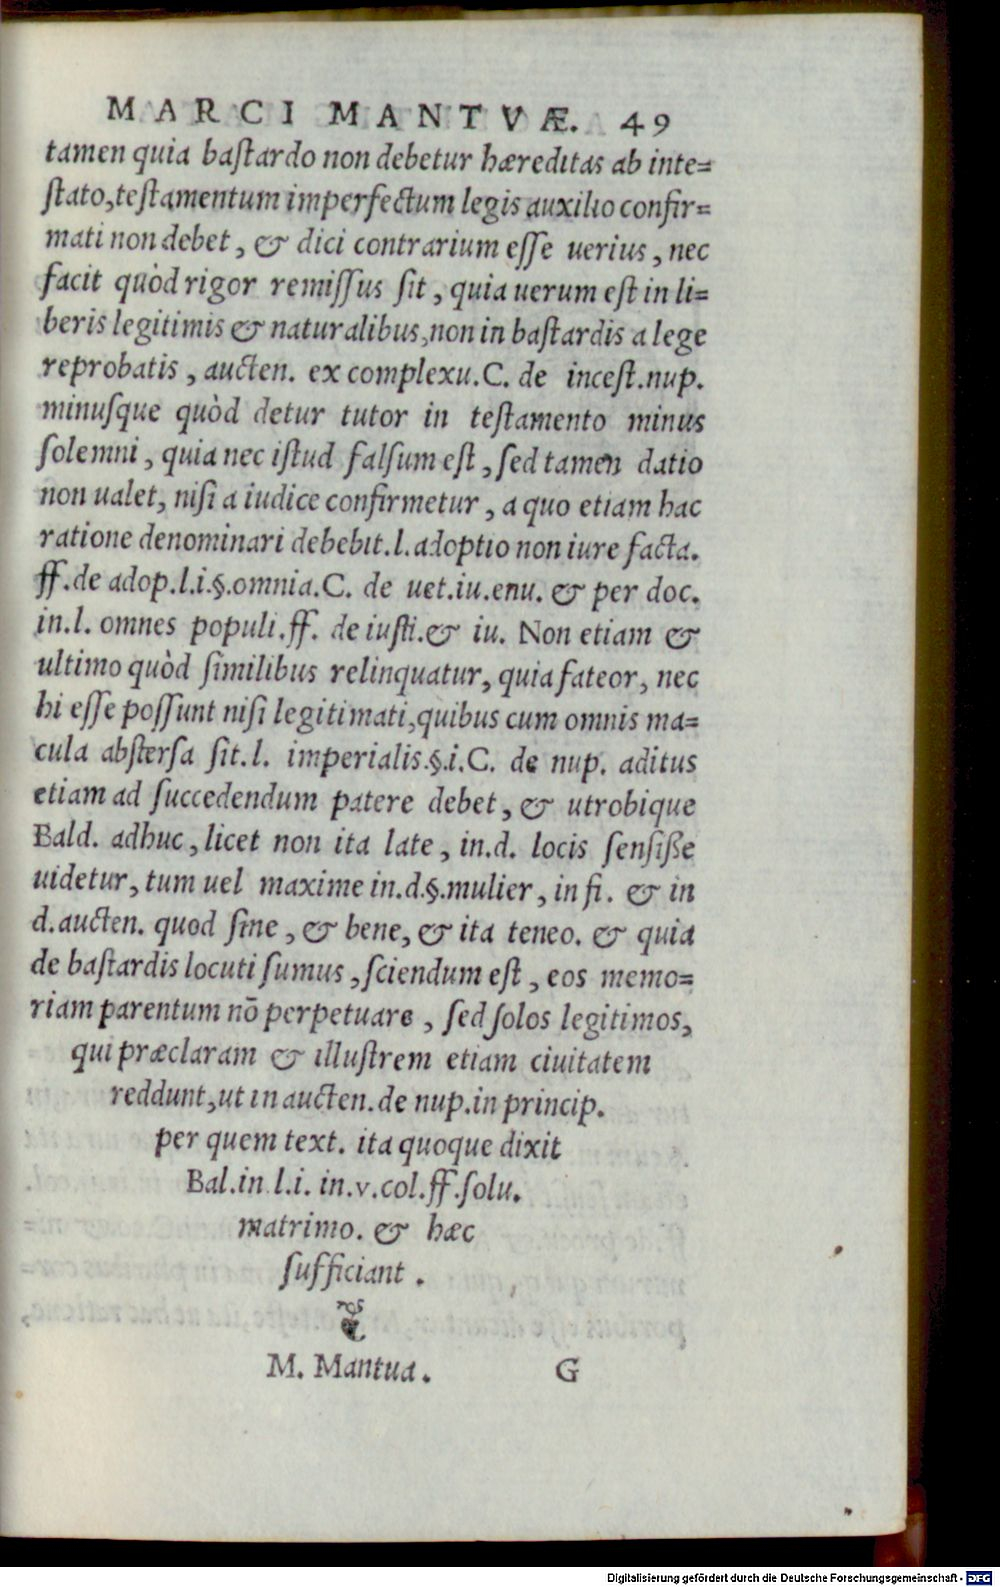 MARCI MANTVÆ. 49
tamen quia bastardo non debetur hæreditas ab inte=
stato, testamentum imperfectum legis auxilio confir=
mati non debet, & dici contrarium esse uerius, nec
facit quòd rigor remissus sit, quia uerum est in li=
beris legitimis & naturalibus, non in bastardis a lege
reprobatis, aucten. ex complexu. C. de incest. nup.
minusque quòd detur tutor in testamento minus
solemni, quia nec istud falsum est, sed tamen datio
non ualet, nisi a iudice confirmetur, a quo etiam hac
ratione denominari debebit. l. adoptio non iure facta.
ff. de adop. l. i. §. omnia. C. de uet. iu. enu. & per doc.
in. l. omnes populi. ff. de iusti. & iu. Non etiam &
ultimo quòd similibus relinquatur, quia fateor, nec
hi esse possunt nisi legitimati, quibus cum omnis ma=
cula abstersa sit. l. imperialis. §. i. C. de nup. aditus
etiam ad succedendum patere debet, & utrobique
Bald. adhuc, licet non ita late, in. d. locis sensiße
uidetur, tum uel maxime in. d. §. mulier, in fi. & in
d. aucten. quod sine, & bene, & ita teneo. & quia
de bastardis locuti sumus, sciendum est, eos memo=
riam parentum nō perpetuare, sed solos legitimos,
qui præclaram & illustrem etiam ciuitatem
reddunt, ut in aucten. de nup. in princip.
per quem text. ita quoque dixit
Bal. in l. i. in. v. col. ff. solu.
matrimo. & hæc
sufficiant.
M. Mantua. G
Digitalisierung gefördert durch die Deutsche Forschungsgemeinschaft - DFG